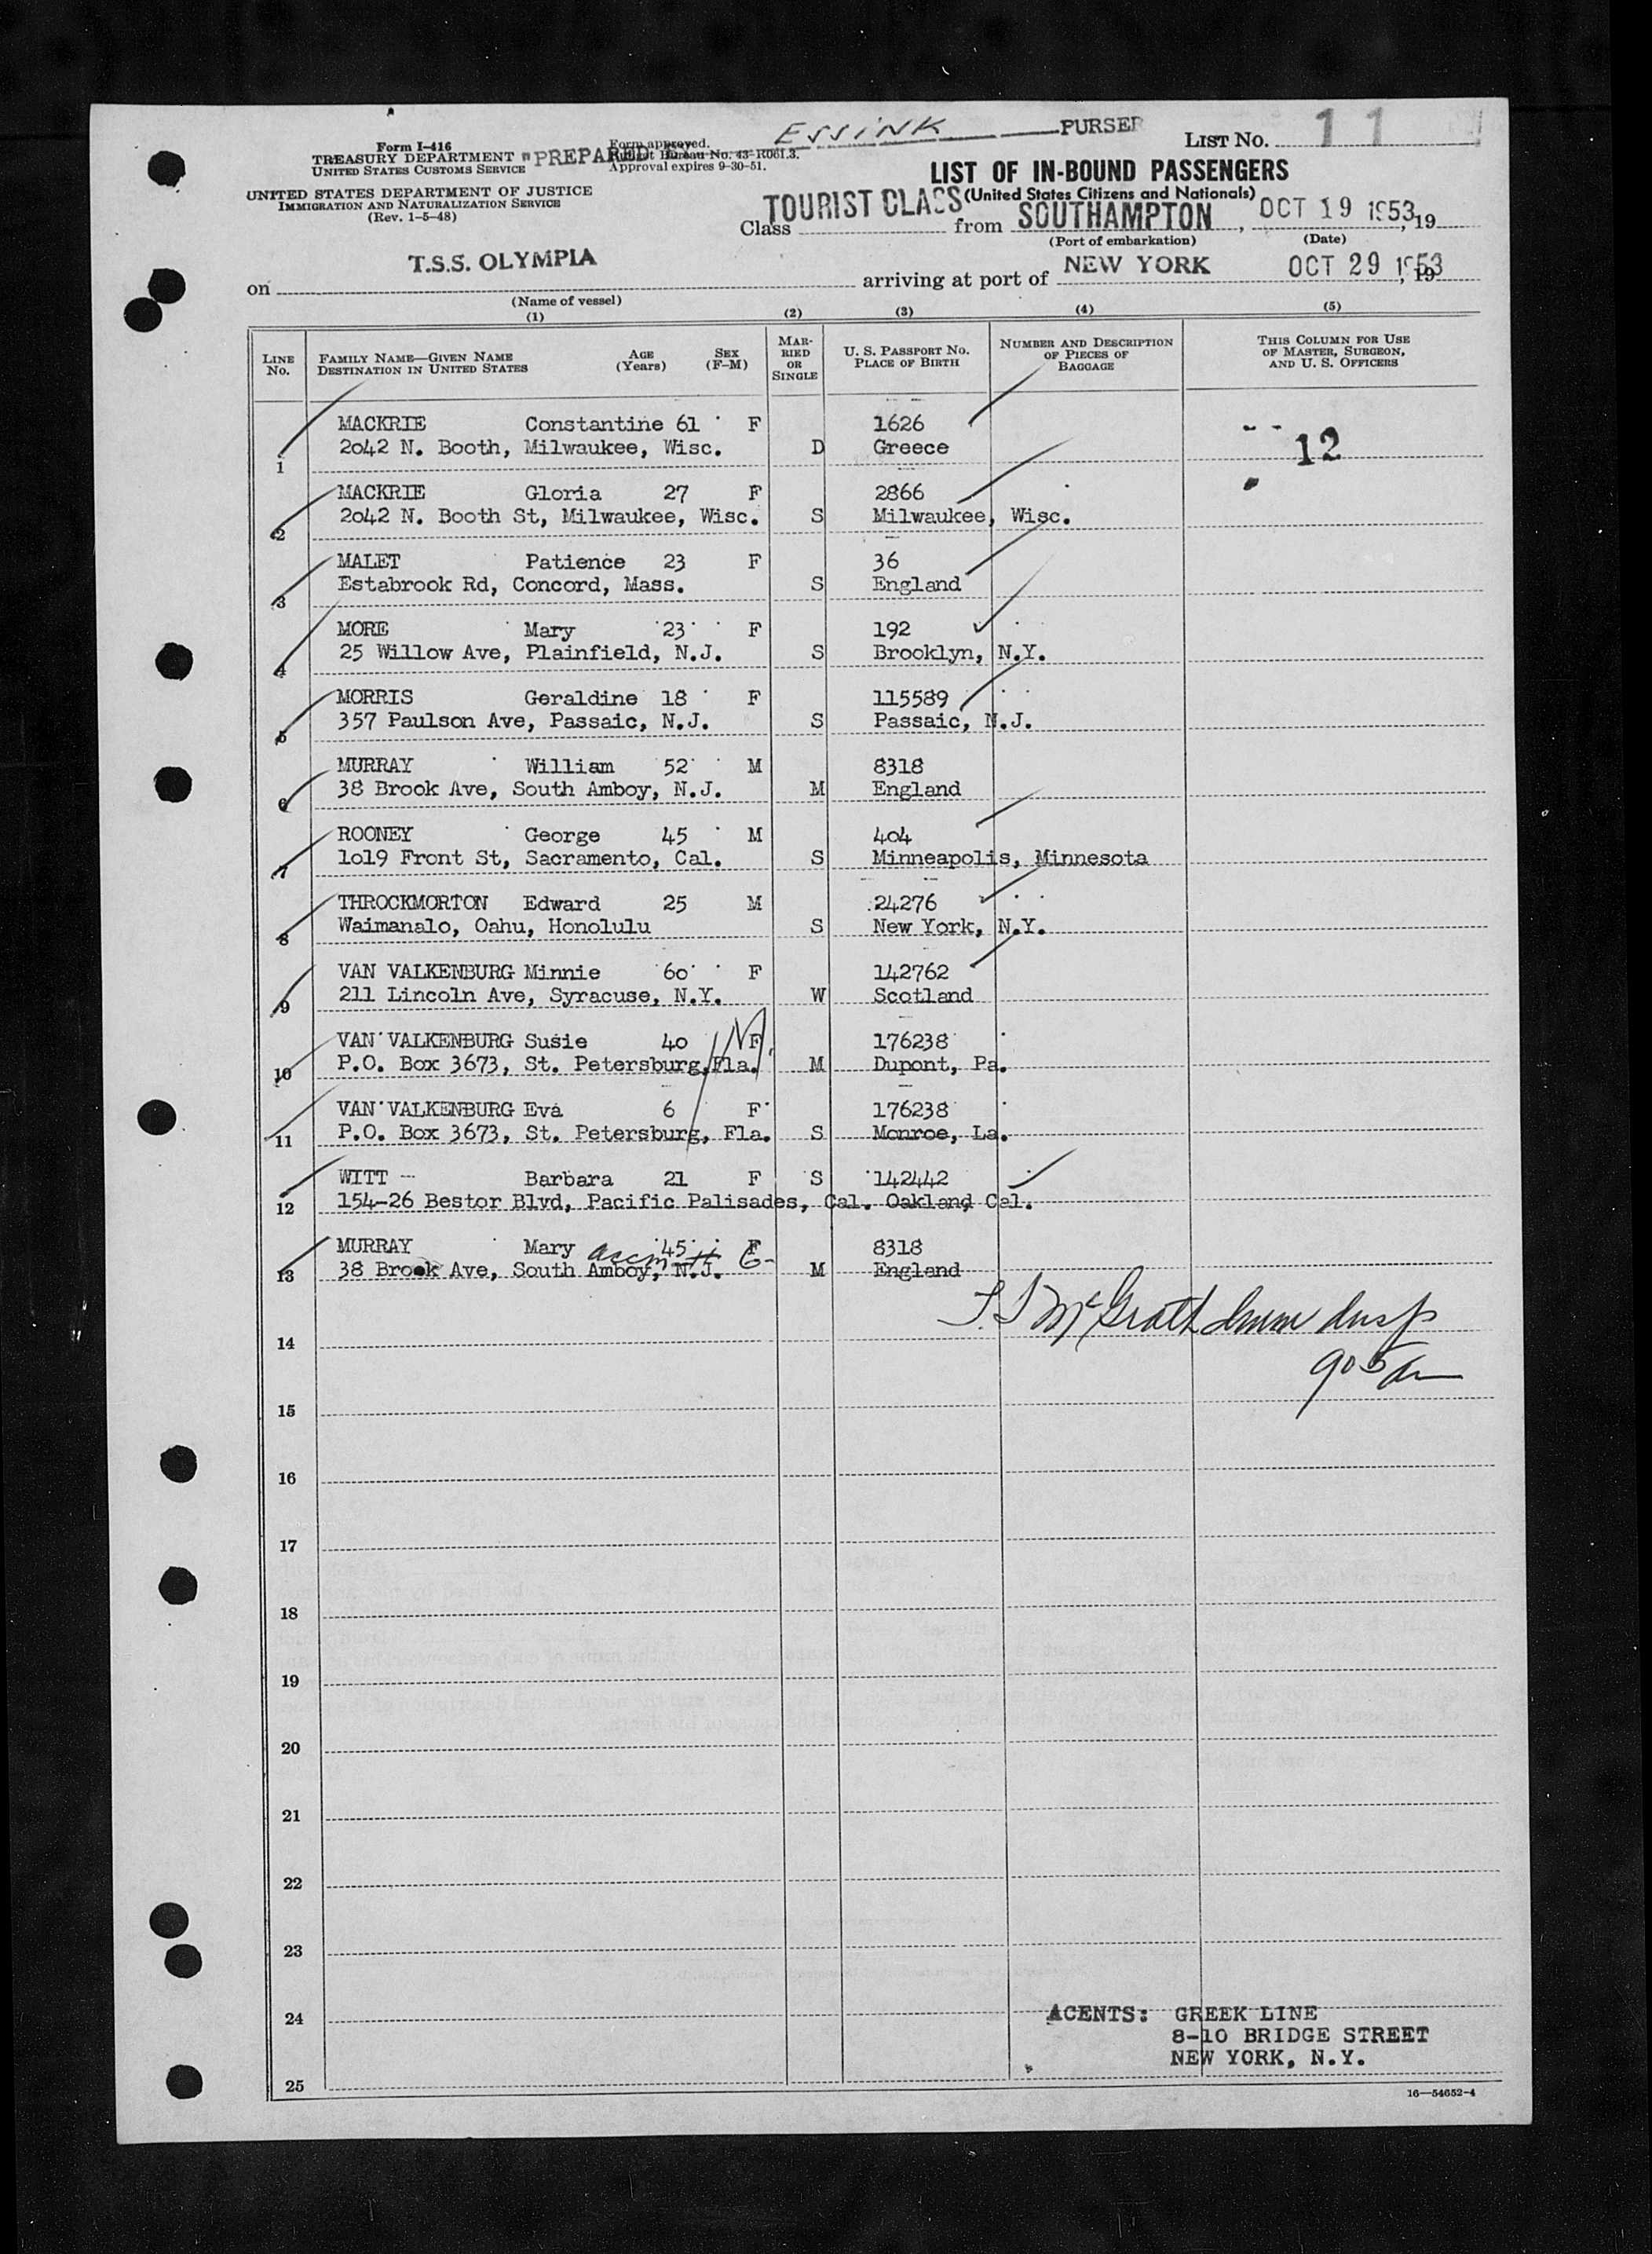 ESSINK PURSER
Form I-416
TREASURY DEPARTMENT
UNITED STATES CUSTOMS SERVICE
"PREPARED
Form approved.
Budget Bureau No. 43-R061.3.
Approval expires 9-30-51.
LIST NO. 11
UNITED STATES DEPARTMENT OF JUSTICE
IMMIGRATION AND NATURALIZATION SERVICE
(Rev. 1-5-48)
LIST OF IN-BOUND PASSENGERS
(United States Citizens and Nationals)
Class TOURIST CLASS from SOUTHAMPTON, OCT 19 1953, 19
(Port of embarkation) (Date)
on T.S.S. OLYMPIA arriving at port of NEW YORK OCT 29 1953, 19
(Name of vessel)
(1) (2) (3) (4) (5)
LINE NO. FAMILY NAME—GIVEN NAME DESTINATION IN UNITED STATES AGE (Years) SEX (F-M) MARRIED OR SINGLE U. S. PASSPORT NO. PLACE OF BIRTH NUMBER AND DESCRIPTION OF PIECES OF BAGGAGE THIS COLUMN FOR USE OF MASTER, SURGEON, AND U. S. OFFICERS
MACKRIE Constantine 61 F 1626
1 2042 N. Booth, Milwaukee, Wisc. D Greece 12
MACKRIE Gloria 27 F 2866
2 2042 N. Booth St, Milwaukee, Wisc. S Milwaukee, Wisc.
MALET Patience 23 F 36
3 Estabrook Rd, Concord, Mass. S England
MORE Mary 23 F 192
4 25 Willow Ave, Plainfield, N.J. S Brooklyn, N.Y.
MORRIS Geraldine 18 F 115589
5 357 Paulson Ave, Passaic, N.J. S Passaic, N.J.
MURRAY William 52 M 8318
6 38 Brook Ave, South Amboy, N.J. M England
ROONEY George 45 M 404
7 1019 Front St, Sacramento, Cal. S Minneapolis, Minnesota
THROCKMORTON Edward 25 M 24276
8 Waimanalo, Oahu, Honolulu S New York, N.Y.
VAN VALKENBURG Minnie 60 F 142762
9 211 Lincoln Ave, Syracuse, N.Y. W Scotland
VAN VALKENBURG Susie 40 F 176238
10 P.O. Box 3673, St. Petersburg, Fla. M Dupont, Pa.
VAN VALKENBURG Eva 6 F 176238
11 P.O. Box 3673, St. Petersburg, Fla. S Monroe, La.
WITT Barbara 21 F S 142442
12 154-26 Bestor Blvd, Pacific Palisades, Cal. Oakland Cal.
MURRAY Mary 45 F 8318
accm # 6
13 38 Brook Ave, South Amboy, N.J. M England
McGrath Imm Insp
14
905 am
15
16
17
18
19
20
21
22
23
24
AGENTS: GREEK LINE
8-10 BRIDGE STREET
NEW YORK, N.Y.
25
16—54652-4